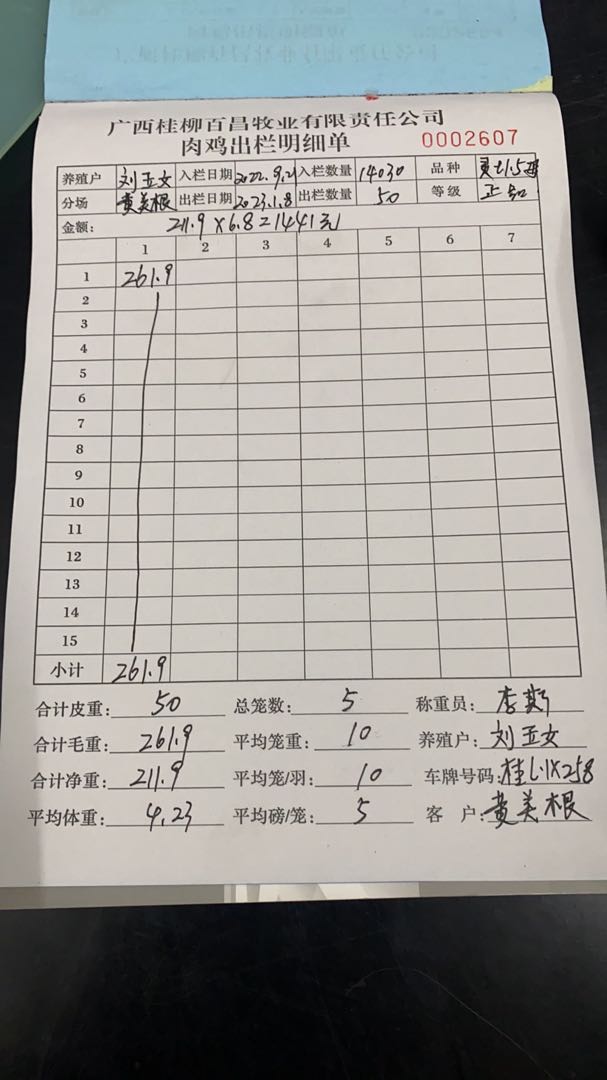 广西桂柳百昌牧业有限责任公司
肉鸡出栏明细单 0002607
养殖户 刘玉女 入栏日期 2022.9.21 入栏数量 14030 品种
分场 黄美根 出栏日期 2023.1.8 出栏数量 50 等级 正
金额: 211.9×6.8=1441元
1 2 3 4 5 6 7
1 261.9
2
3
4
5
6
7
8
9
10
11
12
13
14
15
小计 261.9
合计皮重: 50 总笼数: 5 称重员: 李
合计毛重: 261.9 平均笼重: 10 养殖户: 刘玉女
合计净重: 211.9 平均笼/羽: 10 车牌号码: 桂
平均体重: 4.23 平均磅/笼: 5 客户: 黄美根